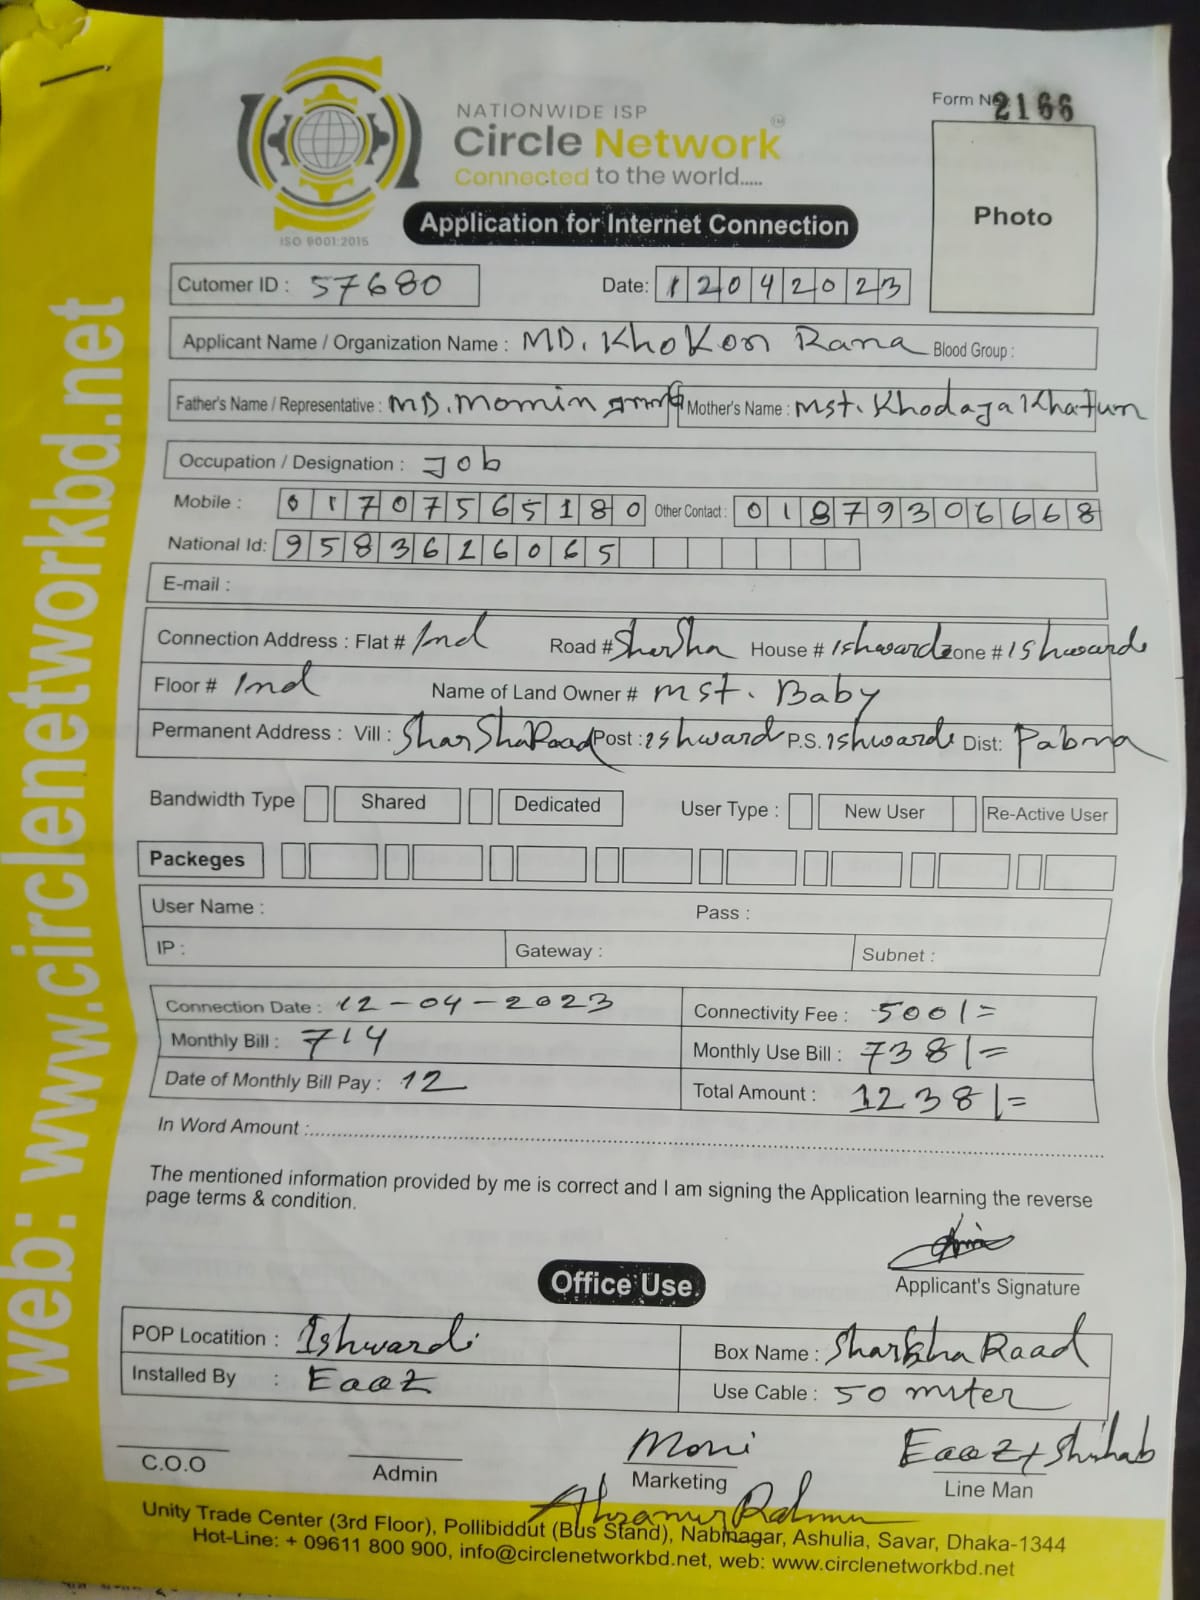 NATIONWIDE ISP
Circle Network TM
Connected to the world.....
ISO 9001:2015
Form No. 2166
Photo
Application for Internet Connection
Cutomer ID : 57680 Date: 12042023
Applicant Name / Organization Name : MD. KhoKon Rana Blood Group :
Father's Name / Representative : MD. Momin Mother's Name : Mst. Khodaja Khatun
Occupation / Designation : Job
Mobile : 01707565180 Other Contact : 01879306668
National Id: 9583616065
E-mail :
Connection Address : Flat # 2nd Road # Sharsha House # Ishwardi Zone # Ishwardi
Floor # 2nd Name of Land Owner # Mst. Baby
Permanent Address : Vill : Sharsha Road Post : Ishwardi P.S. Ishwardi Dist: Pabna
Bandwidth Type Shared Dedicated User Type : New User Re-Active User
Packeges
User Name : Pass :
IP : Gateway : Subnet :
Connection Date : 12-04-2023 Connectivity Fee : 500/=
Monthly Bill : 714 Monthly Use Bill : 738/=
Date of Monthly Bill Pay : 12 Total Amount : 1238/=
In Word Amount :
The mentioned information provided by me is correct and I am signing the Application learning the reverse
page terms & condition.
Applicant's Signature
Office Use.
POP Locatition : Ishwardi Box Name : Sharsha Road
Installed By : Eaaz Use Cable : 50 miter
Moni Eaaz + Shihab
C.O.O Admin Marketing Line Man
Unity Trade Center (3rd Floor), Pollibiddut (Bus Stand), Nabinagar, Ashulia, Savar, Dhaka-1344
Hot-Line: + 09611 800 900, info@circlenetworkbd.net, web: www.circlenetworkbd.net
web: www.circlenetworkbd.net